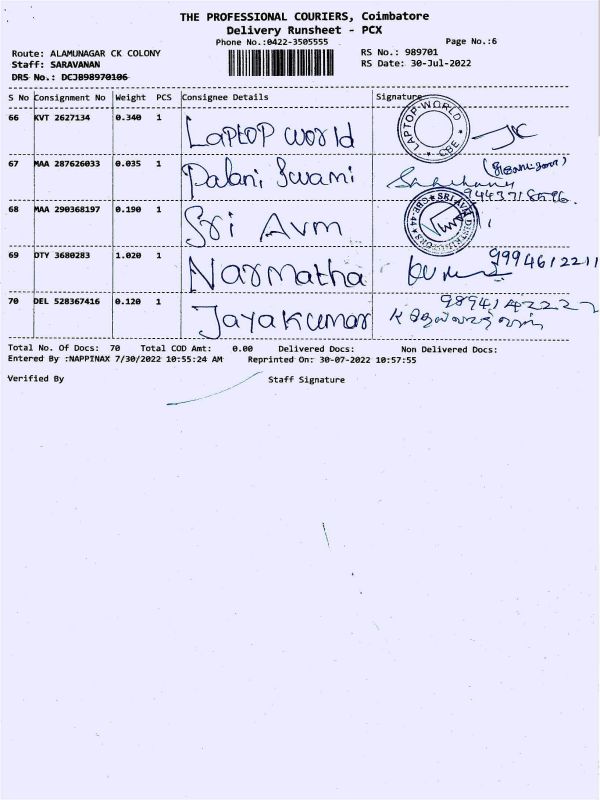 THE PROFESSIONAL COURIERS, Coimbatore
Delivery Runsheet - PCX
Phone No.:0422-3505555 Page No.:6
Route: ALAMUNAGAR CK COLONY RS No.: 989701
Staff: SARAVANAN RS Date: 30-Jul-2022
DRS No.: DCJB98970106
S No Consignment No Weight PCS Consignee Details Signature
66 KVT 2627134 0.340 1 Laptop world LAPTOP WORLD ★ CBE ★
67 MAA 287626033 0.035 1 Palani Swami
9443718596.
68 MAA 290368197 0.190 1 Sri Avm
69 DTY 3680283 1.020 1 Narmatha 9994612211
70 DEL 528367416 0.120 1 Jayakumar 9894142227
Total No. Of Docs: 70 Total COD Amt: 0.00 Delivered Docs: Non Delivered Docs:
Entered By :NAPPINAX 7/30/2022 10:55:24 AM Reprinted On: 30-07-2022 10:57:55
Verified By Staff Signature